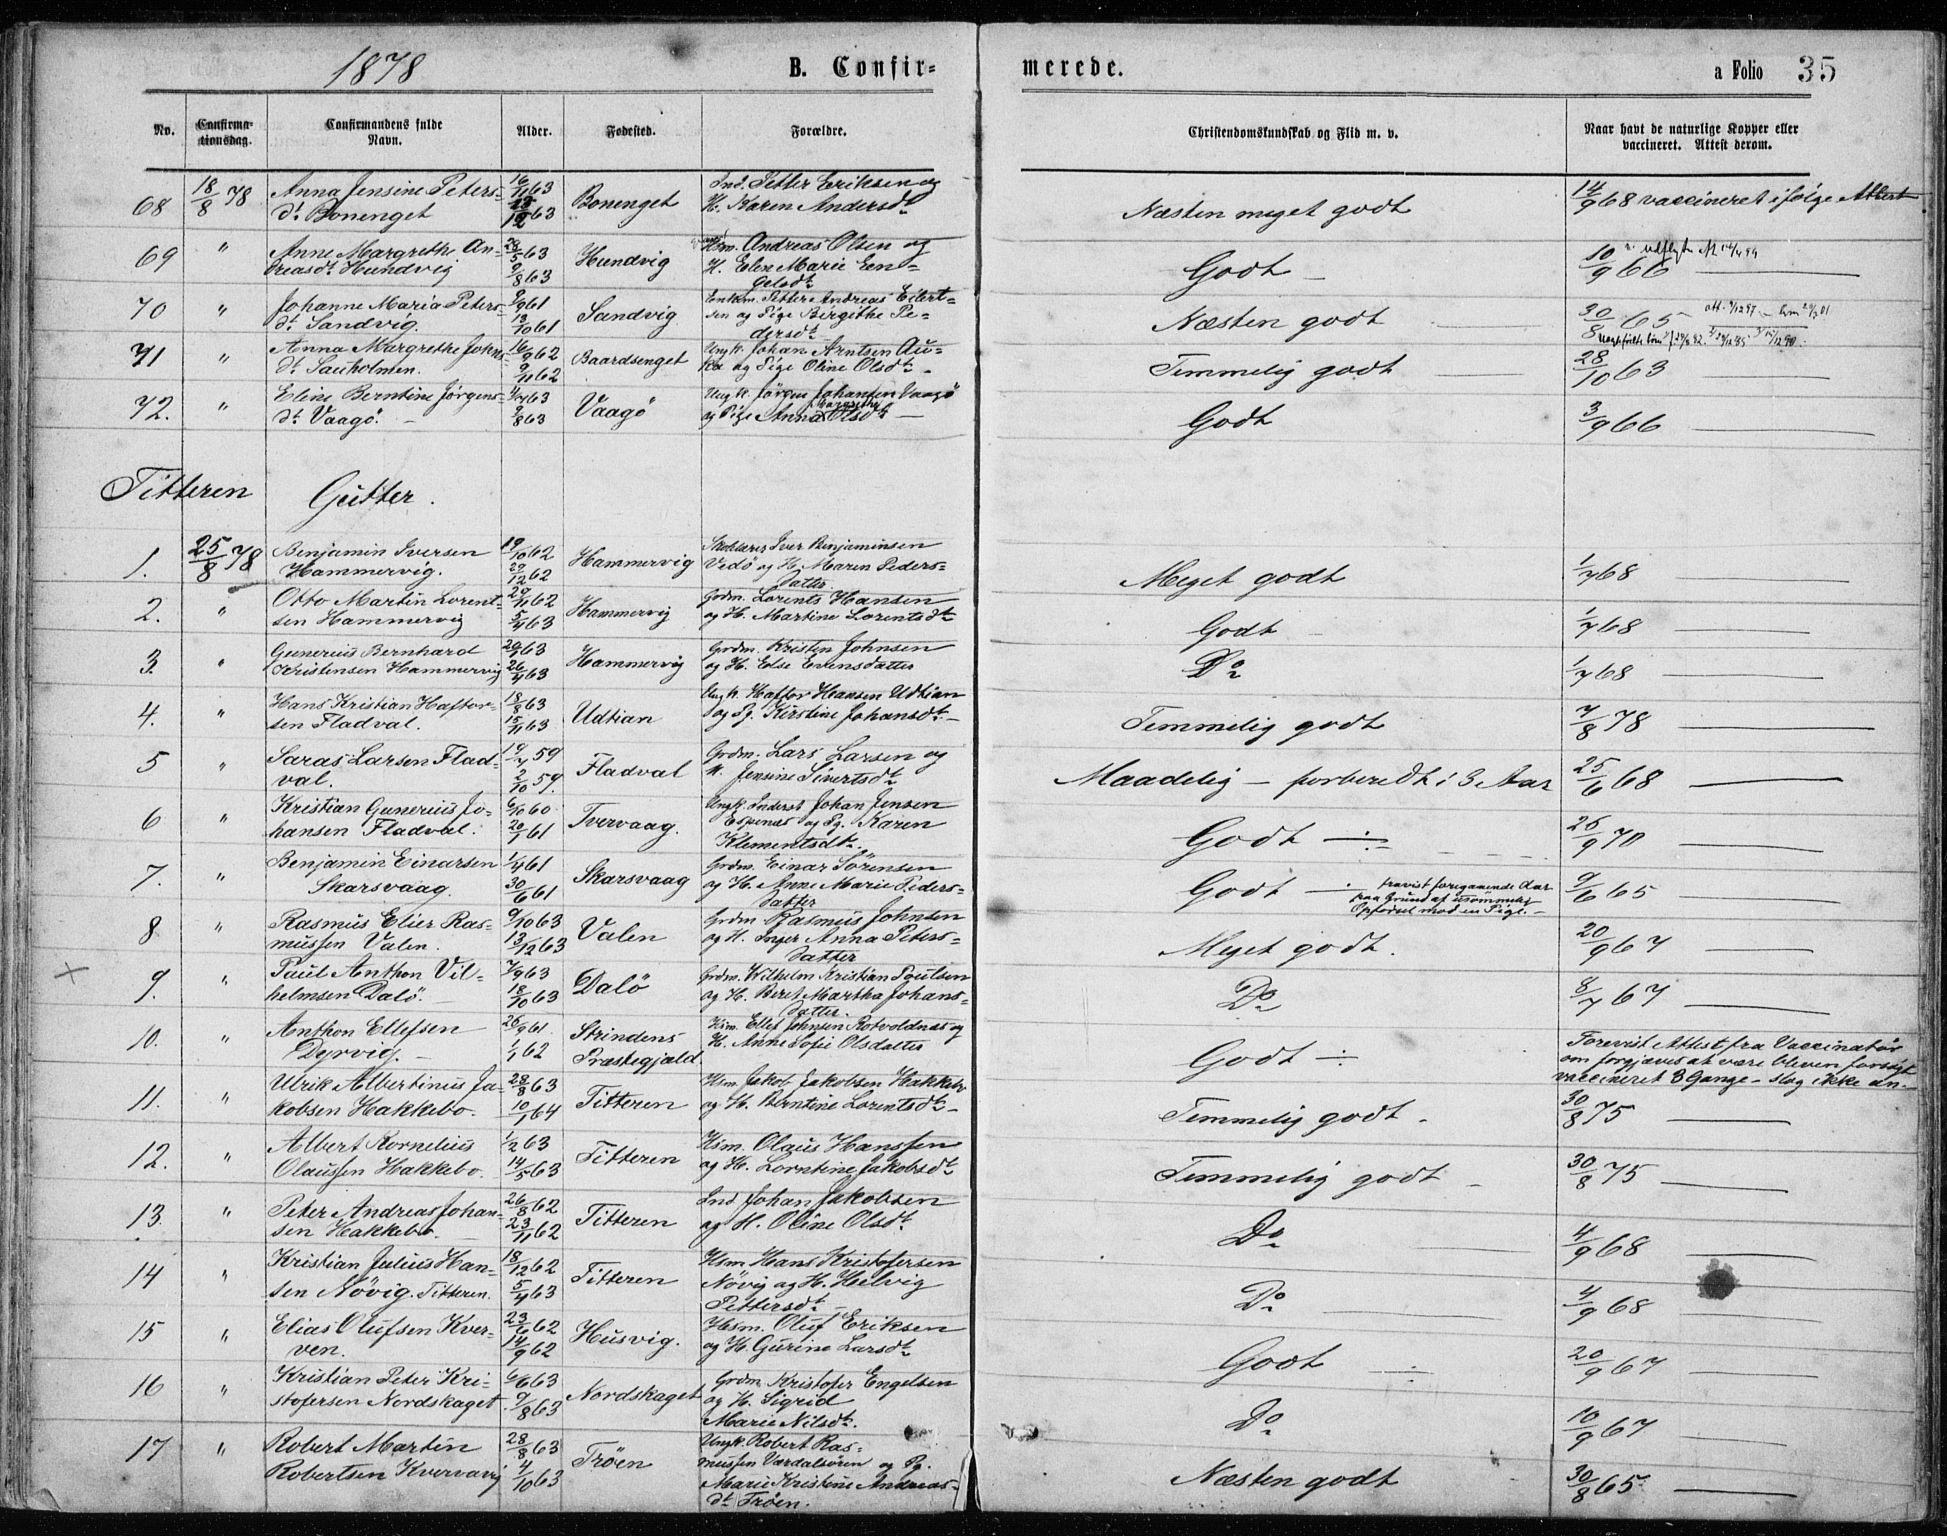 1878
B. Confir-
merede.
a Folio 35
No.
Confirma-
tionsdag.
Confirmandens fulde
Navn.
Alder.
Fødested.
Forældre.
Christendomskundskab og Flid m. v.
Naar havt de naturlige Kopper eller
vaccineret. Attest derom.
68 18/8 78 Anna Jensine Peters-
dt. Bonenget
16/11 63
12/12 63
Bonenget
Ind. Petter Eriksen og
H. Karen Andersdt.
Næsten meget godt
14/9 68 vaccineret ifølge Attest
69 " Anne Margrethe An-
dreasdt. Hundvig
28/5 63
9/8 63
Hundvig
Hsm. Andreas Olsen og
H. Elen Marie En-
gelsdt.
Godt —
10/9 66 —
70 " Johanne Maria Peters-
dt. Sandvig.
9/9 61
13/10 61
Sandvig
Enkm. Petter Andreas Eilert-
sen og Pige Birgithe Pe-
dersdt.
Næsten godt
30/8 65
71 " Anna Margrethe Johns-
dt. Sauholmen.
16/9 62
9/11 62
Baardsenget
Ungk. Johan Arntsen Au-
ka og Pige Oline Olsdt.
Temmelig godt
28/10 63 —
72. " Eline Berntine Jørgens-
dt. Vaagö. —
4/7 63
9/8 63
Vaagö
Ung k. Jörgen Johansen Vaagö
og Pige Anna Margrethe Olsdt. —
Godt
3/9 66 —
Titteren Gutter.
1. 25/8 78 Benjamin Iversen
Hammervig.
19/10 62
29/12 62
Hammervig
Skolelærer Iver Benjaminsen
Vedö og H. Maren Peders-
datter
Meget godt
1/7 68 —
2. " Otto Martin Lorent-
sen Hammervig
29/11 62
5/4 63
Hammervig
Grdm. Lorents Hansen
og H. Martine Lorentsdt.
Godt
1/7 68 —
3. " Gunerius Bernhard
Kristensen Hammervig
29/1 63
26/4 63
Hammervig
Grdm. Kristen Johnsen
og H. Edse Evensdatter
Do
1/7 68 —
4. " Hans Kristian Haftor-
sen Fladval.
18/8 63
15/11 63
Udtian
Ung k. Haftor Hansen Udtian
og Pg. Kirstine Johansdt. —
Temmelig godt
7/8 78 —
5 " Saras Larsen Flad-
val.
19/7 59
2/10 59.
Fladval
Grdm. Lars Larsen og
H. Jensine Sivertsdt.
Maadelig — forberedt i 3 Aar
25/6 68 —
6 " Kristian Gunerius Jo-
hansen Fladval.
6/10 60
20/1 61
Tvervaag.
Ungk. Inderst Johan Jensen
Espenæs og Pg. Karen
Klementsdt.
Godt —
26/9 70 —
7. " Benjamin Einarsen
Skarsvaag.
1/4 61
30/6 61
Skarsvaag
Grdm. Einar Sörensen
og H. Anne Marie Peders-
datter
Godt — fravist foregaaende Aar
paa Grund af usömmelig
Opförsel mod en Pige. —
9/6 65 —
8 " Rasmus Elier Ras-
mussen Valen.
9/10 63
13/12 63
Valen
Grdm Rasmus Johnsen
og H. Inger Anna Peters-
datter
Meget godt.
20/9 67 —
× 9. " Paul Anthon Vil-
helmsen Dalö. —
7/9 63
18/10 63
Dalö
Grdm. Wilhelm Kristian Poulsen
og H. Beret Martha Johans-
datter.
Do
8/7 67 —
10. " Anthon Ellefsen
Dyrvig. —
26/9 61.
1/1 62
Strindens
Præstegjæld
Hsm. Ellef Johnsen Rotvoldnæs og
H. Anne Sofie Olsdatter
Godt —
Forevist Attest fra Vaccinatör
om forgjæves at være bleven forsögt
vaccineret 3 Gange — slog ikke an. —
11. " Ulrik Albertinus Ja-
kobsen Hakkebo.
28/8 63
10/1 64
Titteren
Hsm. Jakob Jakobsen Hakkebo
og H. Berntine Lorentsdt. —
Temmelig godt —
30/8 75 —
12. " Albert Kornelius
Olaussen Hakkebo.
1/2 63
14/5 63
Titteren
Hsm. Olaus Hanssen
og H. Lorntine Jakobsdt.
Temmelig godt —
30/8 75 —
13. " Peter Andreas Johan-
sen Hakkebo. —
26/8 62
23/11 62
Titteren
Ind Johan Jakobsen
og H. Oline Olsdt.
Do
4/9 68 —
14 " Kristian Julius Han-
sen Növig. Titteren.
18/12 62
5/4 63
Titteren
Hsm Hans Kristofersen
Növig og H. Helvig
Pettersdt. —
Do
4/9 68 —
15 " Elias Olufsen Kver-
ven.
23/6 62
14/9 62
Husvig.
Hsm. Oluf Eriksen
og H. Gurine Larsdt.
Godt —
20/9 67 —
16 " Kristian Peter Kri-
stofersen Nordskaget.
6/6 63
9/8 63
Nordskaget
Grdm. Kristofer Engelsen
og H. Sigrid
Marie Nilsdt.
Do
10/9 67 —
17 " Robert Martin
Robertsen Kvervavig
28/8 63
4/10 63
Tröen
Ungk. Robert Ras-
mussen Værdalsören og Pg.
Marie Kristine Andreas-
dt. Tröen.
Næsten godt
30/8 65 —